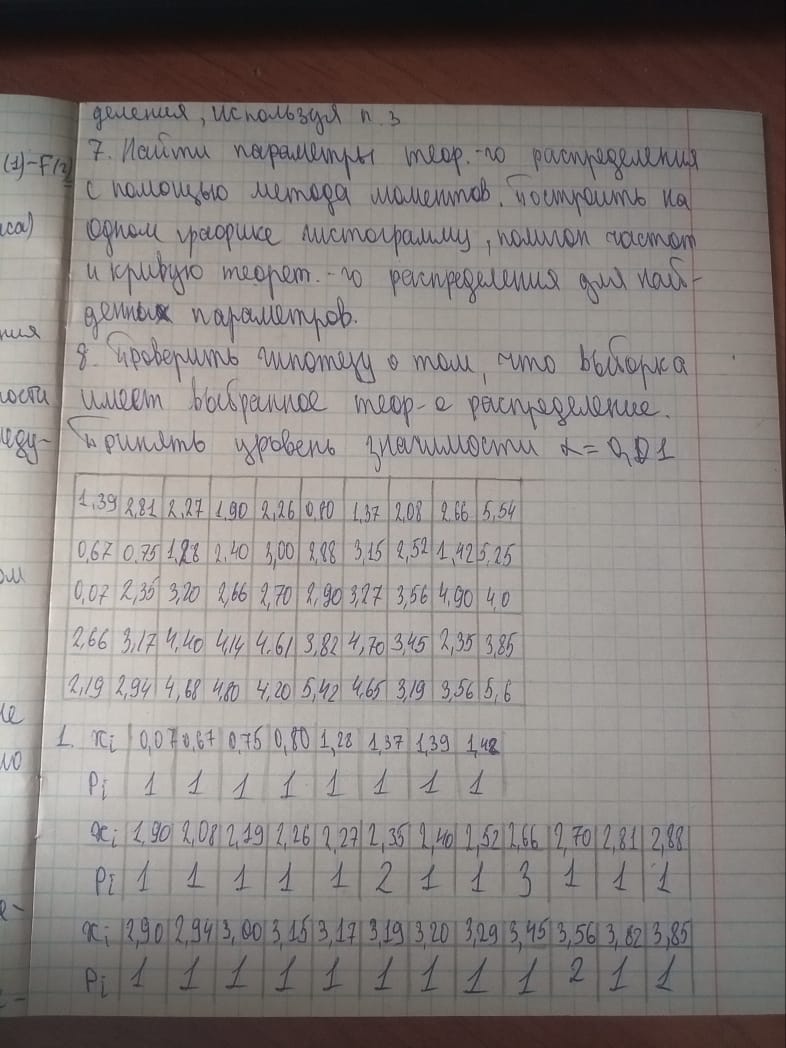 деления, используя п. 3
(1)-F(2)
7. Найти параметры теор.-го распределения
с помощью метода моментов. Построить на
одном графике гистограмму, полигон частот
и кривую теорет.-го распределения для най-
денных параметров.
8. Проверить гипотезу о том, что выборка
имеет выбранное теор-е распределение.
Принять уровень значимости α=0,01
1,39 2,81 2,27 1,90 2,26 0,80 1,37 2,08 2,66 5,54
0,67 0,75 1,28 2,40 3,00 2,88 3,15 2,52 1,42 5,25
0,07 2,35 3,20 2,66 2,70 2,90 3,27 3,56 4,90 4,0
2,66 3,17 4,40 4,14 4,61 3,82 4,70 3,45 2,35 3,85
2,19 2,94 4,68 4,80 4,20 5,42 4,65 3,19 3,56 5,6
1. xi 0,07 0,67 0,75 0,80 1,28 1,37 1,39 1,42
Pi 1 1 1 1 1 1 1 1
xi 1,90 2,08 2,19 2,26 2,27 2,35 2,40 2,52 2,66 2,70 2,81 2,88
Pi 1 1 1 1 1 2 1 1 3 1 1 1
xi 2,90 2,94 3,00 3,15 3,17 3,19 3,20 3,29 3,45 3,56 3,82 3,85
Pi 1 1 1 1 1 1 1 1 1 2 1 1